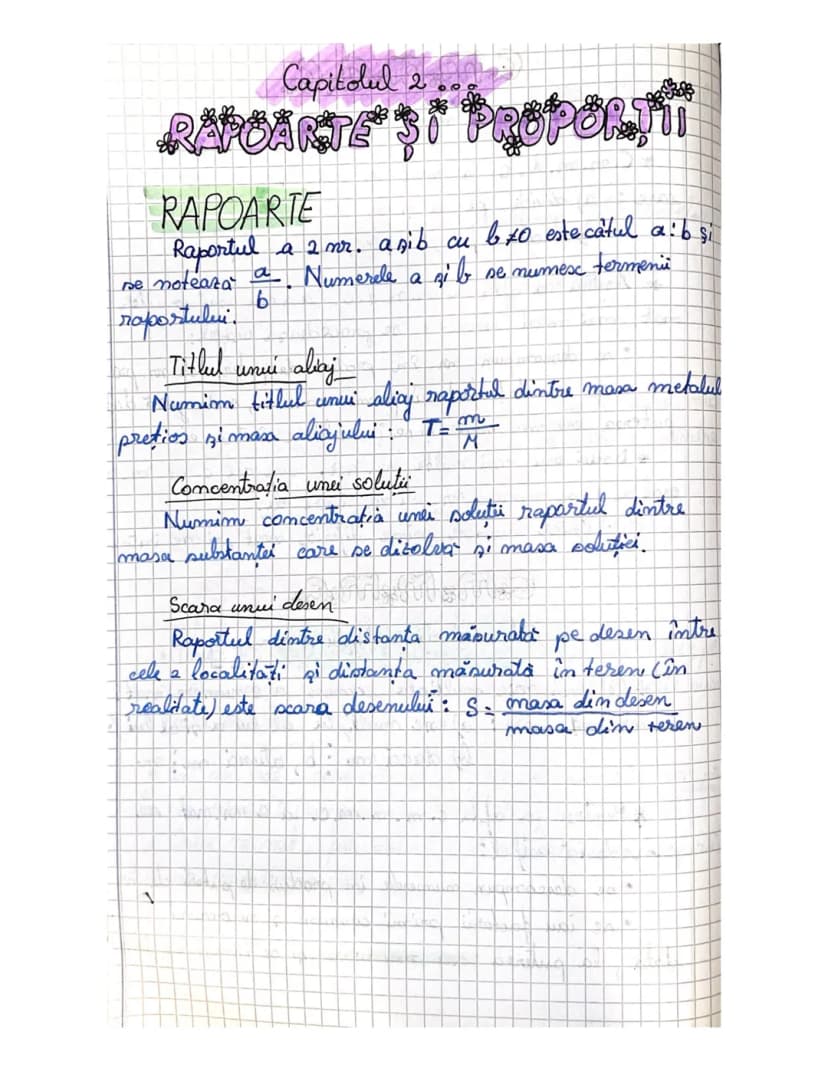 Capitolul 2...
RAPOARTE ȘI PROPORȚII
RAPOARTE
Raportul a 2 nr. a și b cu b≠0 este câtul a:b și
se notează a/b. Numerele a și b se numesc termenii
raportului.
Titlul unui aliaj
Numim titlul unui aliaj raportul dintre masa metalul
prețios și masa aliajului: T=m/M
Concentrația unei soluții
Numim concentrația unei soluții raportul dintre
masa substanței care se dizolvă și masa soluției.
Scara unui desen
Raportul dintre distanța măsurată pe desen între
cele 2 localități și distanța măsurată în teren (în
realitate) este scara desenului: S= masa din desen
masa din teren